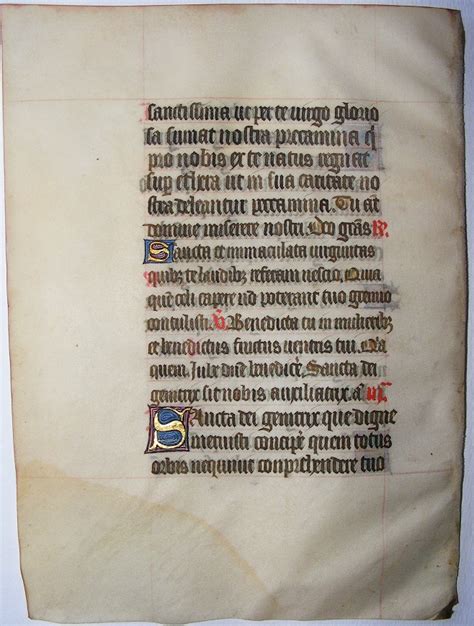 sanctissima ut per te virgo glorio
sa sumat nostra precamina q
pro nobis ex te natus regnat
sup ethera ut in sua caritate no
stra deleantur peccamina. Tu aut
domine miserere nostri. Deo grãs R.
Sancta et immaculata virginitas
quibz te laudibz referam nescio. Quia
que celi capere nõ poterant tuo gremio
contulisti. V. Benedicta tu in mulieribz
et benedictus fructus ventris tui. Qa
quem. Jube dñe benedicẽ. Sancta dei
genitrix sit nobis auxiliatrix. a.
Sancta dei genitrix que digne
meruisti concipe quem totus
orbis nequivit conprehendere tuo